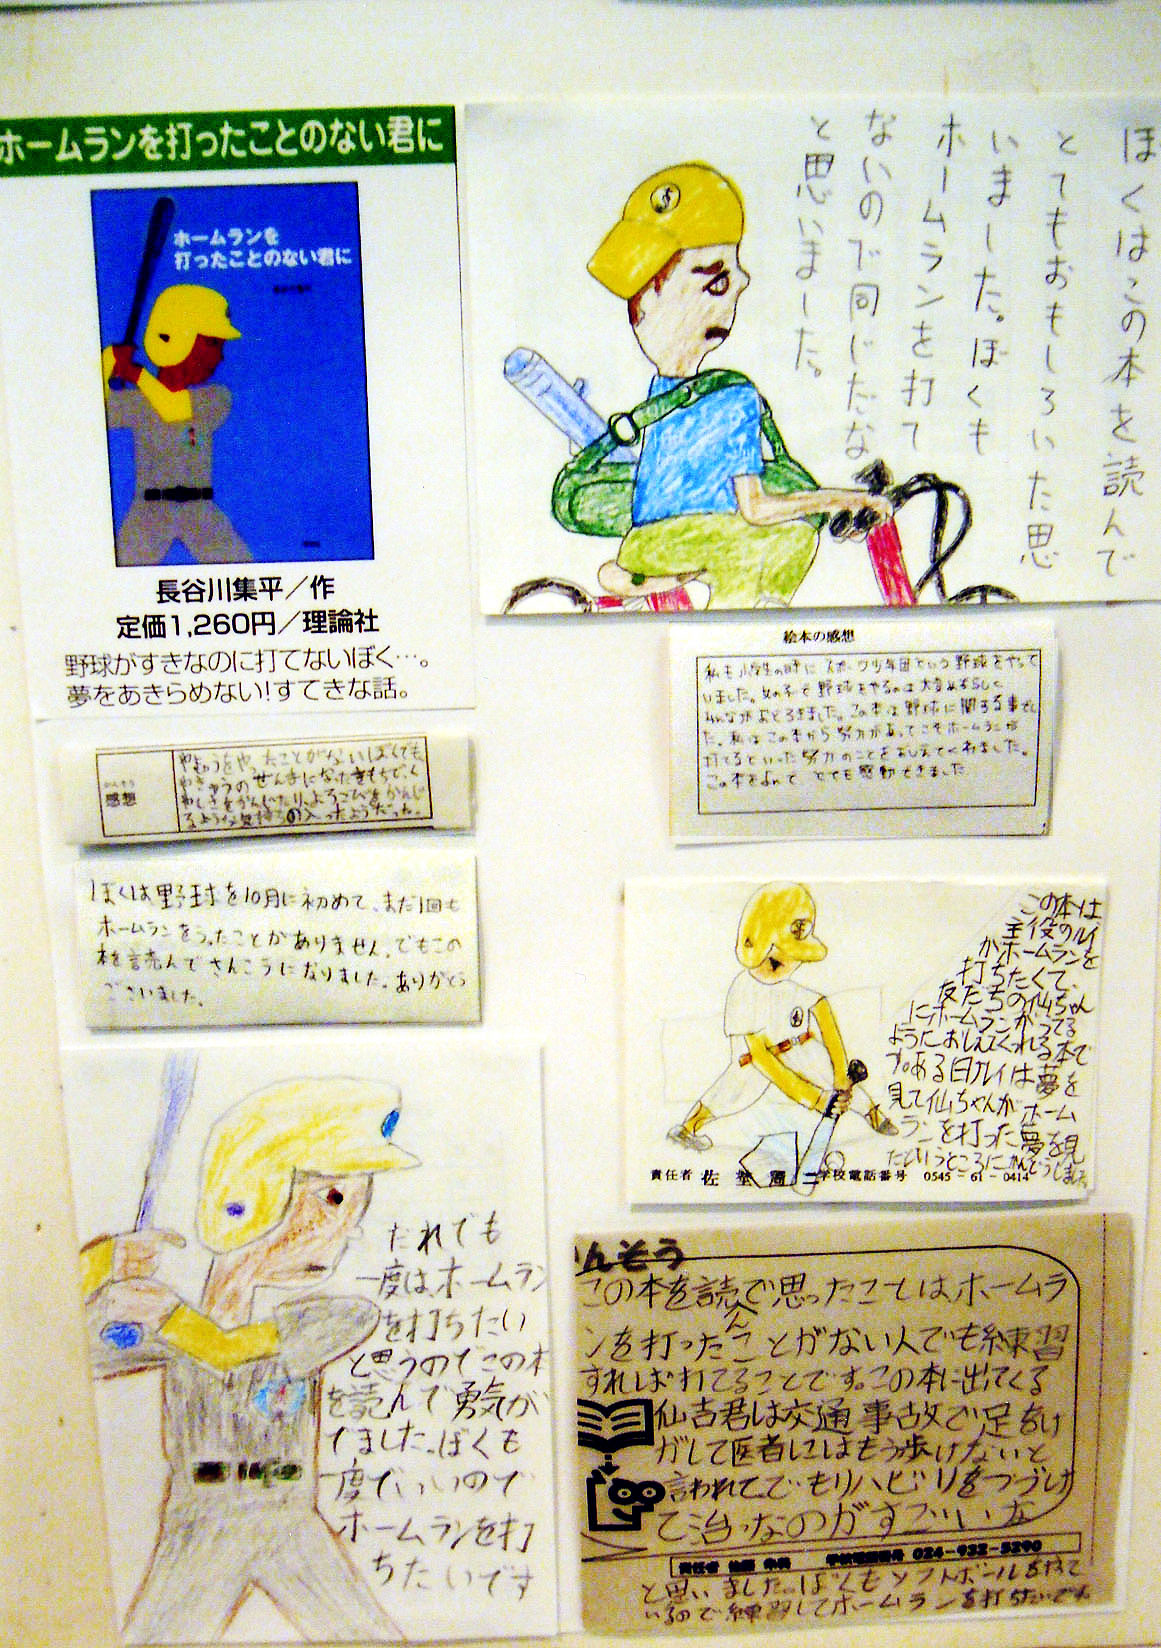 ホームランを打ったことのない君に
ホームランを
打ったことのない君に
長谷川集平／作
定価1,260円／理論社
野球がすきなのに打てないぼく…。
夢をあきらめない！すてきな話。
ぼくはこの本を読んで
とてもおもしろいた思
いました。ぼくも
ホームランを打て
ないので同じだな
と思いました。
絵本の感想
私も小学生の時に スポーツ少年団という 野球をやって
いました。女の子で 野球をやるのは 大変めずらしく
みんながおどろきました。この本は 野球に関する事でし
た。私は この本から 努力があってこそホームランが
打てるといった 努力のことを おしえてくれました。
この本をよんで とても感動できました
かんそう
感想
やきゅうをやったことがないぼくでも
やきゅうのせんしゅになったきもちで、く
やしさをかんじたり、よろこびをかんじ
るような気持ちの入ったようだった。
ぼくは野球を10月に初めて、まだ1回も
ホームランをうったことがありません。でもこの
本を読んでさんこうになりました。ありがとう
ございました。
この本は
主役のルイ
がホームランを
打ちたくて、
友だちの仙ちゃん
にホームランがうてる
ようにおしえてくれる本で
す。ある日ルイは夢を
見て仙ちゃんがホーム
ランを打った夢を見
たというところにかんどうしました
責任者 佐 二 学校電話番号 0545－61－0414
だれでも
一度は、ホームラン
を打ちたい
と思うのでこの本
を読んで勇気が
でました。ぼくも
一度でいいので
ホームランを打
ちたいです
んそう
この本を読んで思ったことは、ホームラ
ンを打ったことがない人でも練習
すれば打てることです。この本に出てくる
仙吉君は交通事故で足をけ
がして医者にはもう歩けないと、
言われて、でもリハビリをつづけ
て治ったのがすごいな
責任者 学校電話番号 024－932－5290
と思いました。ぼくもソフトボールをやって
いるので練習してホームランを打ちたいです。